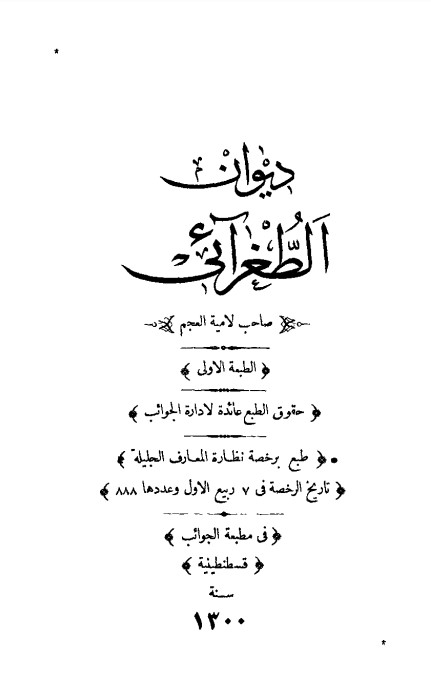 ديوان
الطُّغرآئى
صاحب لامية العجم
﴿ الطبعة الاولى ﴾
﴿ حقوق الطبع عائدة لادارة الجوائب ﴾
﴿ طبع برخصة نظارة المعارف الجليلة ﴾
﴿ تاريخ الرخصة فى ٧ ربيع الاول وعددها ٨٨٨ ﴾
﴿ فى مطبعة الجوائب ﴾
﴿ قسطنطينية ﴾
سنة
١٣٠٠